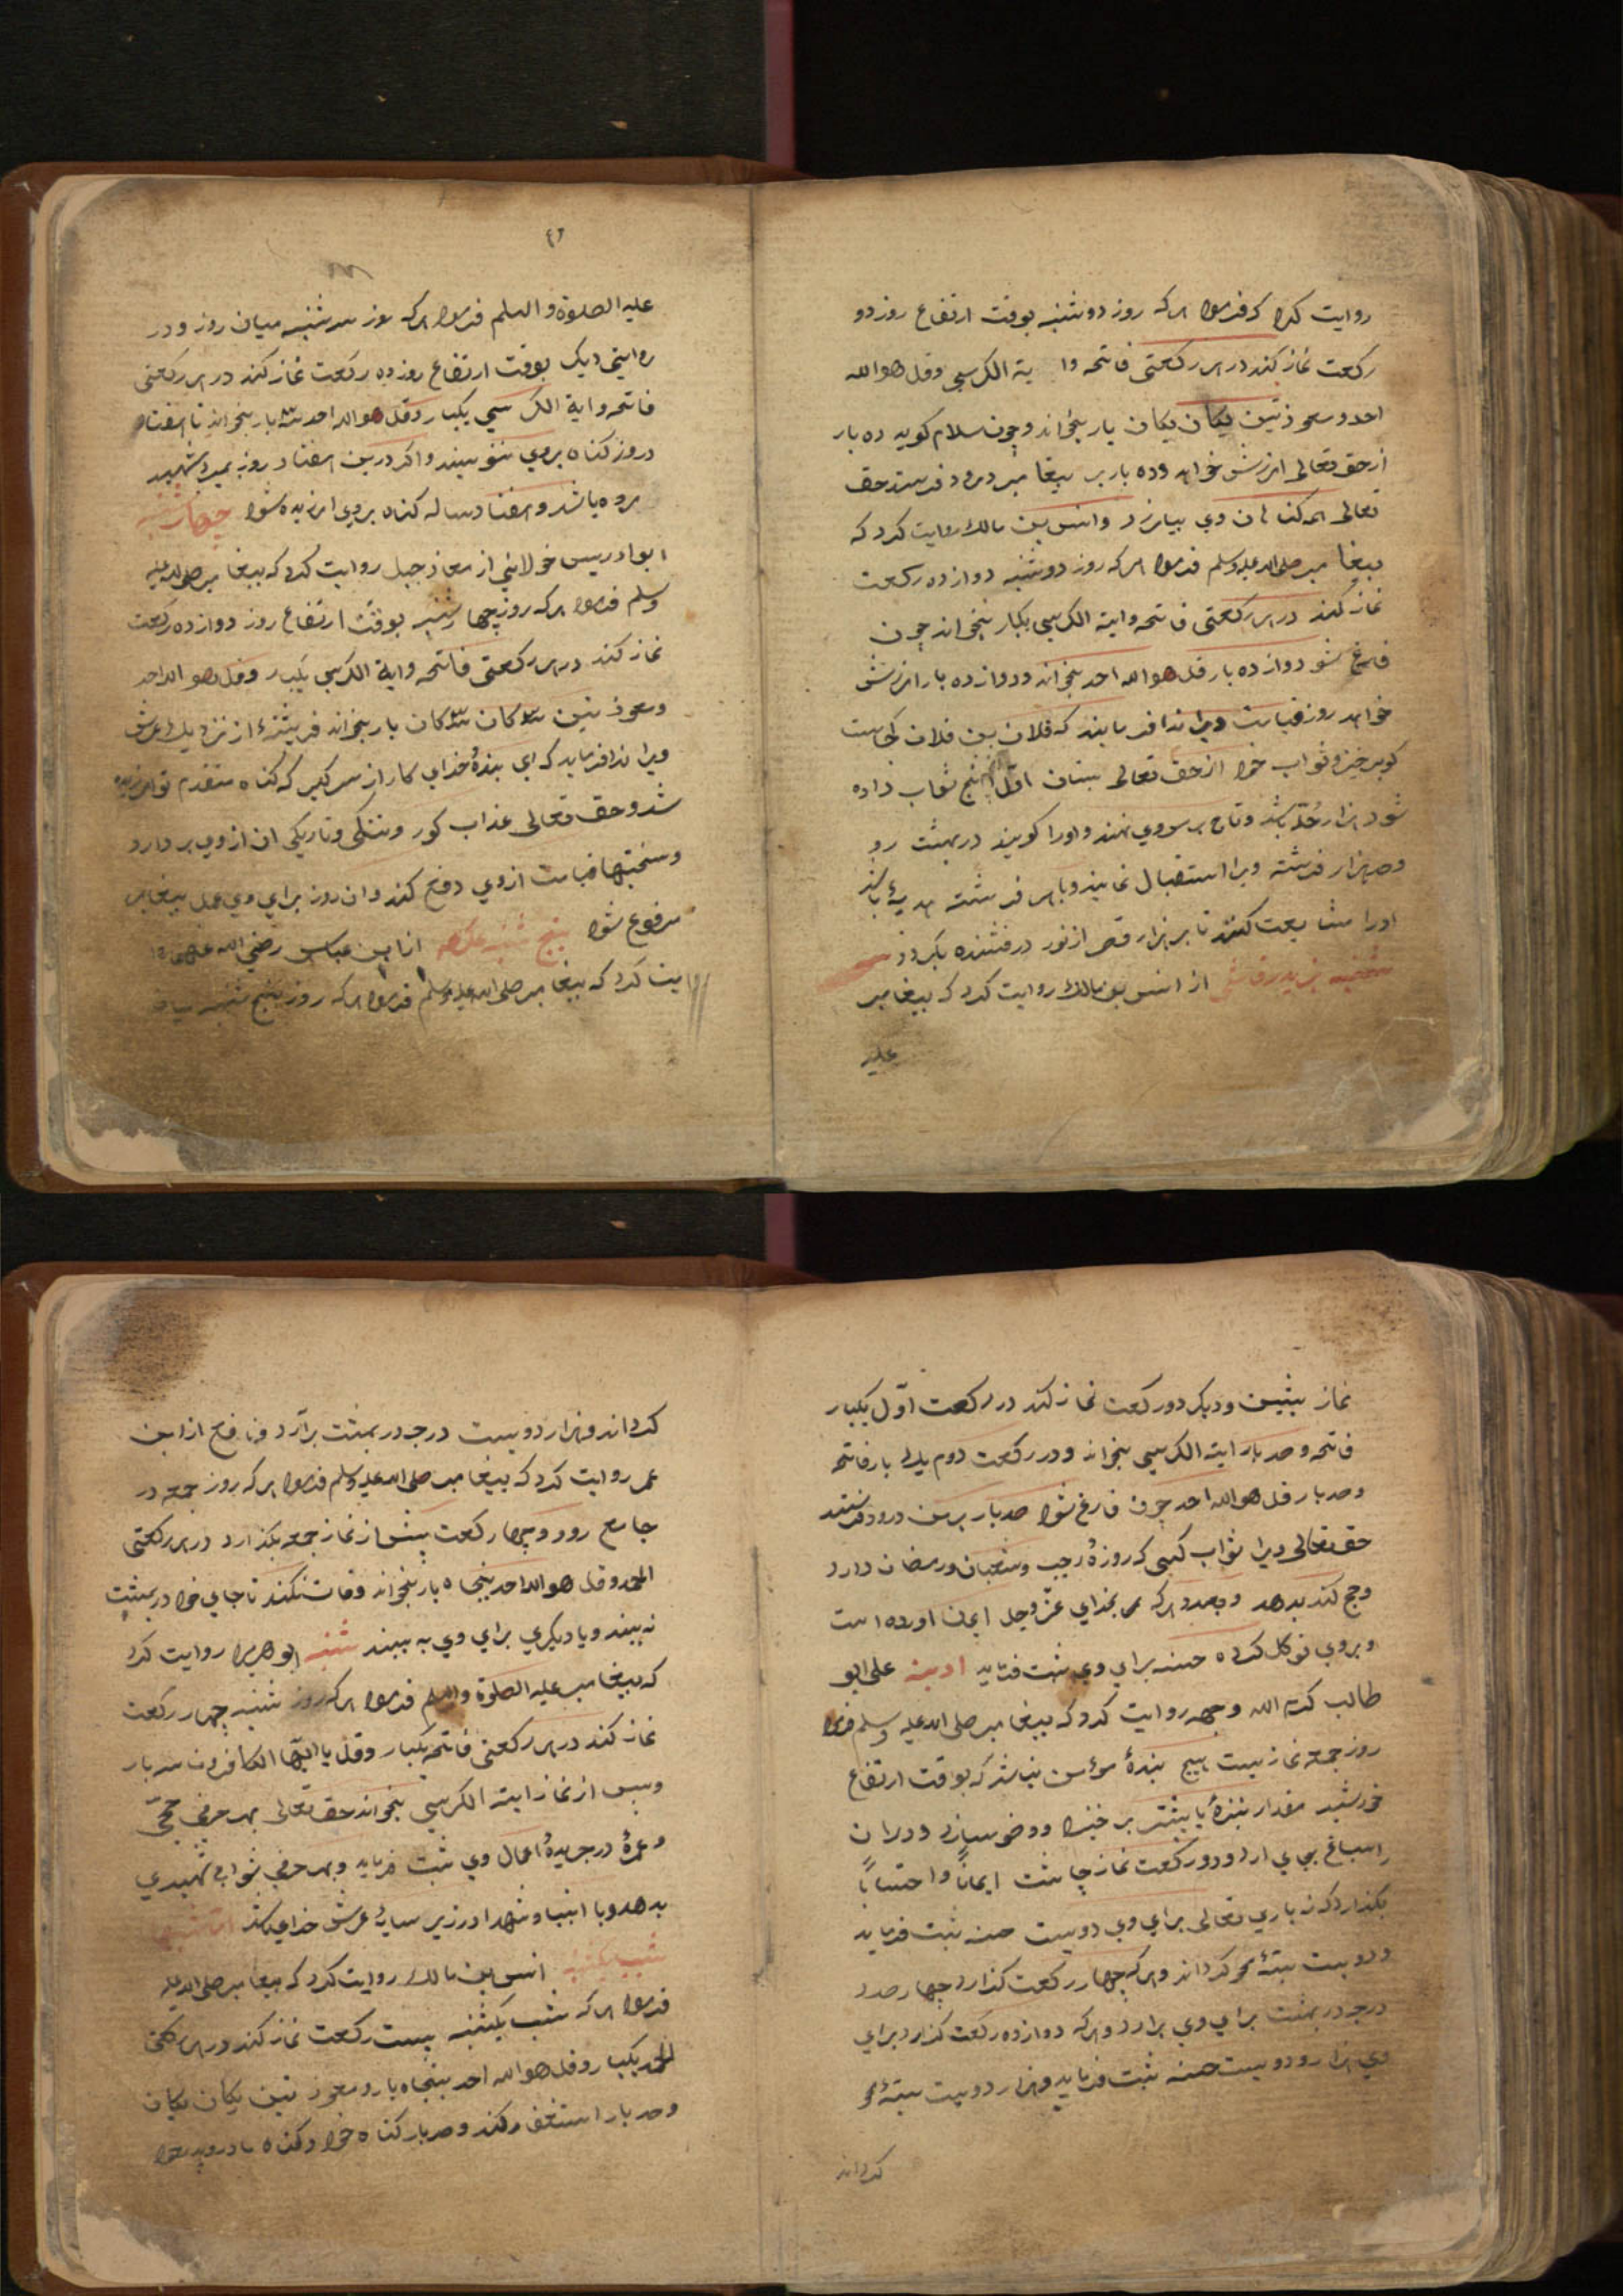 روایت کرد که فرمود هر که روز دوشنبه بوقت ارتفاع روز دو
رکعت نماز کند در هر رکعتی فاتحه و ایة الکرسی و قل هو الله
احد و معوذتین یکان یکان بار بخواند و چون سلام کوید ده بار
از حق تعالی امرزش خواهد و ده بار بر پیغامبر درود فرستد حق
تعالی همه کناهان وی بیامرزد و انس بن مالک روایت کرد که
پیغامبر صلی الله علیه وسلم فرمود هر که روز دوشنبه دوازده رکعت
نماز کند در هر رکعتی فاتحه و ایة الکرسی یکبار بخواند چون
فارغ شود دوازده بار قل هو الله احد بخواند و دوازده بار امرزش
خواهد روز قیامت ویرا ندا فرمایند که فلان بن فلان کجاست
کو برخیز و ثواب خود از حق تعالی بستان اول ثواب داده
شود هزار حله باشد و تاج بر سر وی نهند و اورا کویند در بهشت رو
و صد هزار فرشته ویرا استقبال نمایند و با هر فرشته هدیه باشد
اورا مشایعت کنند تا بر هزار قصر از نور درفشنده بکردد سه
شنبه یزید رقاشی از انس بن مالک روایت کرد که پیغامبر
علیه
٤٢
علیه الصلوة و السلم فرمود هر که روز سه شنبه میان روز و در
روایتی دیک بوقت ارتفاع روز ده رکعت نماز کند در هر رکعتی
فاتحه و ایة الکرسی یکبار و قل هو الله احد سه بار بخواند تا هفتاد
در روز کناه بروی ننویسند و اکر درین هفتاد روز بمیرد شهید
مرده باشد و هفتاد ساله کناه بروی امرزیده شود چهارشنبه
ابو ادریس خولانی از معاذ جبل روایت کرد که پیغامبر صلی الله علیه
وسلم فرمود هر که روز چهارشنبه بوقت ارتفاع روز دوازده رکعت
نماز کند در هر رکعتی فاتحه و ایة الکرسی یکبار و قل هو الله احد
و معوذتین سه کان سه کان بار بخواند فریشتهٔ از نزدیک عرش
ویرا ندا فرماید که ای بندهٔ خدای کار از سر کیر که کناه متقدم تو امرزیده
شد و حق تعالی عذاب کور و تنکی و تاریکی ان از وی بر دارد
و سختیها قیامت از وی دفع کند و ان روز برای وی عمل پیغامبر
مرفوع شود پنج شنبه عکرمه از ابن عباس رضی الله عنهما روا
یت کرد که پیغامبر صلی الله علیه وسلم فرمود هر که روز پنج شنبه میان
نماز پیشین و دیکر دو رکعت نماز کند در رکعت اول یکبار
فاتحه و صد بار ایة الکرسی بخواند و در رکعت دوم یک بار فاتحه
و صد بار قل هو الله احد چون فارغ شود صد بار بر من درود فرستد
حق تعالی ویرا ثواب کسی که روزهٔ رجب و شعبان و رمضان دارد
و حج کند بدهد و بعدد هر که بخدای عز وجل ایمان اورده است
و بروی توکل کرده حسنه برای وی ثبت فرماید ادینه علی ابو
طالب کرم الله وجهه روایت کرد که پیغامبر صلی الله علیه وسلم فرمود
روز جمعه نمازیست هیچ بندهٔ مؤمن نباشد که بوقت ارتفاع
خورشید مقدار نیزهٔ یا بیشتر بر خیزد و وضو سازد و دران
اسباغ بجای ارد و دو رکعت نماز چاشت ایمانًا و احتسابًا
بکذارد که نه باری تعالی برای وی دویست حسنه ثبت فرماید
و دویست سیئه محو کرداند و هر که چهار رکعت کذارد چهار صد
درجه در بهشت برای وی برارد و هر که دوازده رکعت کذارد برای
وی هزار و دویست حسنه ثبت فرماید و هزار دویست سیئه محو
کرداند
کرداند و هزار دویست درجه در بهشت برآرد و نافع از ابن
عمر روایت کرد که پیغامبر صلی الله علیه وسلم فرمود هر که روز جمعه در
جامع رود و چهار رکعت پیش از نماز جمعه بکذارد در هر رکعتی
الحمد و قل هو الله احد پنجاه بار بخواند وفات نکند تا جای خود در بهشت
نه بیند و یا دیکری برای وی به بیند شنبه ابو هریره روایت کرد
که پیغامبر علیه الصلوة والسلم فرمود هر که روز شنبه چهار رکعت
نماز کند در هر رکعتی فاتحه یکبار و قل یا ایها الکافرون سه بار
و پس از نماز ایة الکرسی بخواند حق تعالی بهر حرفی حجی
و عمرهٔ در جریدهٔ اعمال وی ثبت فرماید و بهر حرفی ثوابی شهیدی
بدهد و با انبیا و شهدا در زیر سایهٔ عرش خدای باشد اما شبها
شب یکشنبه انس بن مالک روایت کرد که پیغامبر صلی الله علیه
فرمود هر که شب یکشنبه بیست رکعت نماز کند در هر رکعتی
الحمد یکبار و قل هو الله احد پنجاه بار و معوذتین یکان یکان
و صد بار استغفار کند و صد بار کناه خود و کناه مادر و پدر خود